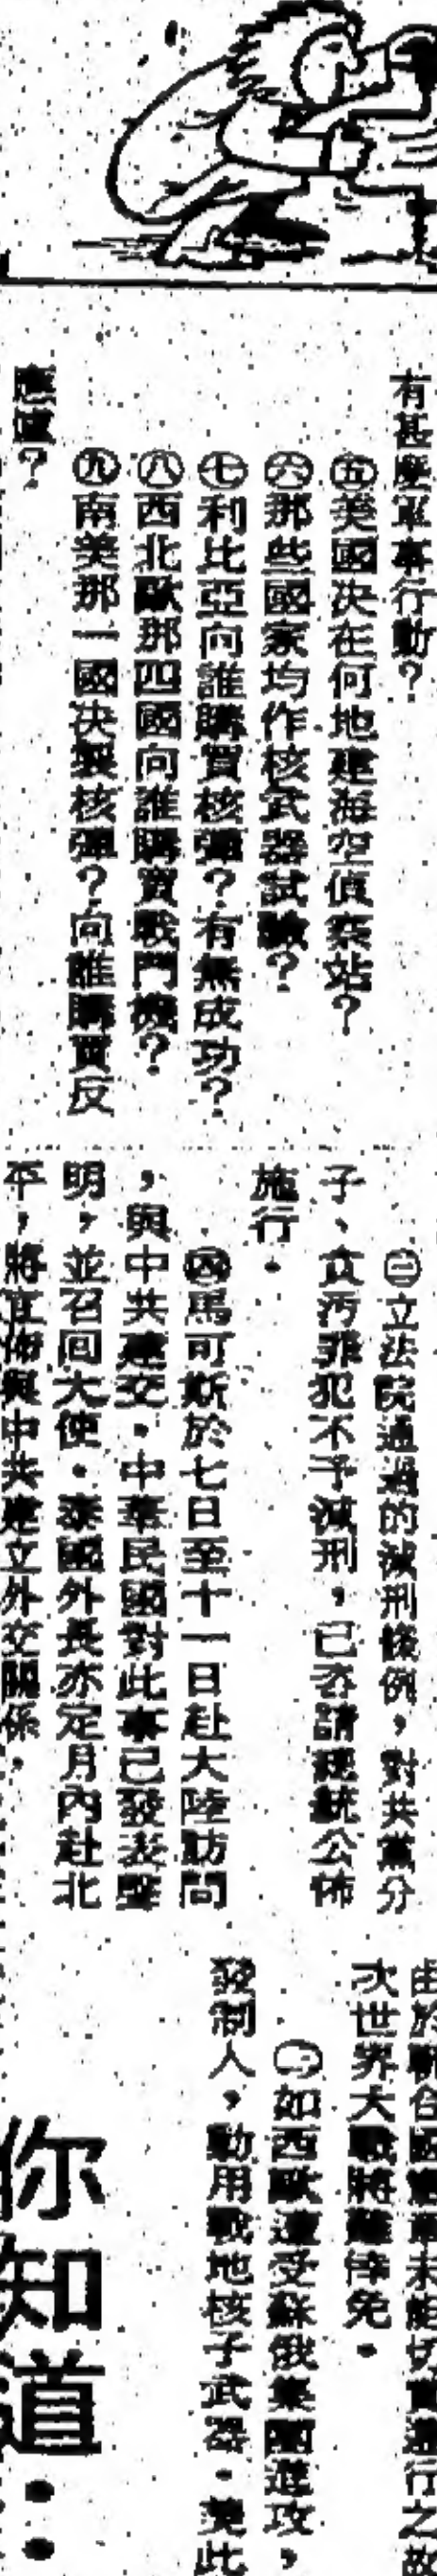 有甚麼軍事行動?
㊄美國決在何地建海空偵察站?
㊅那些國家均作核武器試驗?
㊆利比亞向誰購買核彈?有無成功?
㊇西北歐那四國向誰購買戰鬥機?
㊈南美那一國決製核彈?向誰購買反
應爐?
㊂立法院通過的減刑條例,對共黨分
子、貪汚罪犯不予減刑,已咨請總統公佈
施行。
㊃馬可斯於七日至十一日赴大陸訪問
,與中共建交。中華民國對此事已發表聲
明,並召回大使。泰國外長亦定月內赴北
平,將宣佈與中共建立外交關係。
由於聯合國憲章未能切實進行之故
次世界大戰將難倖免。
如西歐遭受蘇俄集團進攻,
發制人,動用戰地核子武器。美此
你知道: